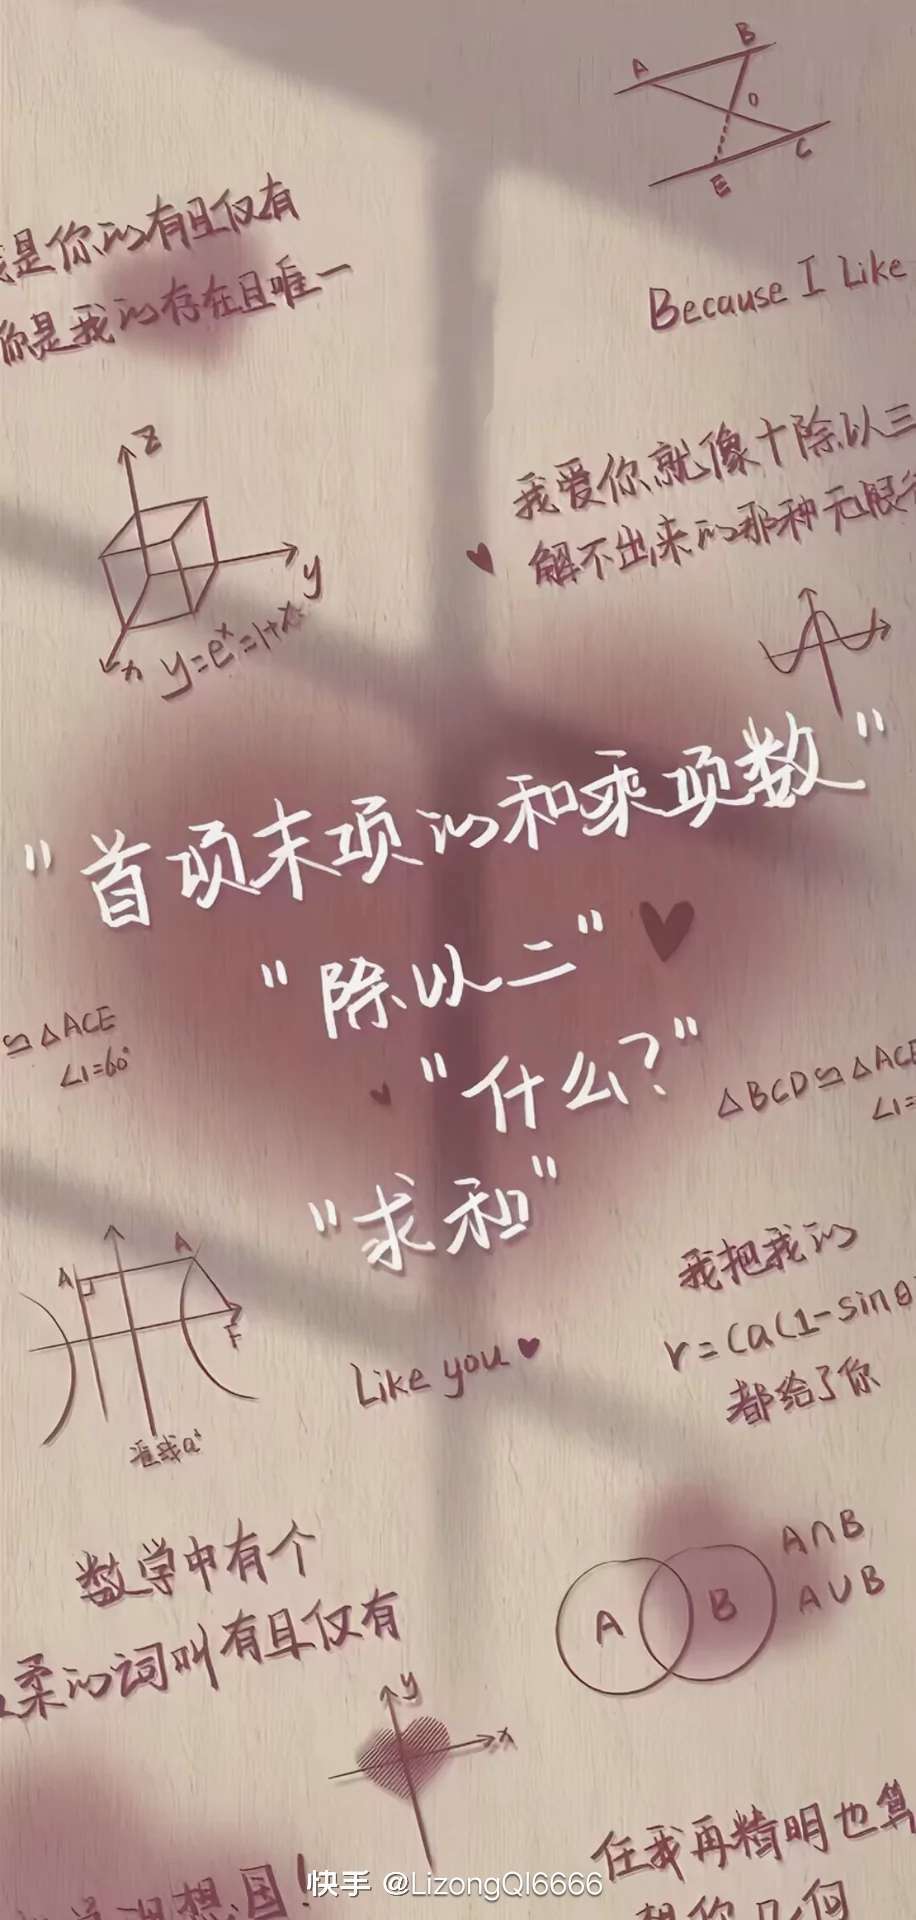 A
B
O
C
E
是你的有且仅有
你是我的存在且唯一
Because I Like
我爱你就像十除以三
解不出来的那种无限
z
y
x
y=eˣ=1+x
"首项末项的和乘项数"
"除以二"
"什么?"
"求和"
≌△ACE
∠1=60°
△BCD≌△ACE
∠1=
A
A
F
Like you
我把我的
r=(a(1-sinθ
都给了你
数学中有个
柔的词叫有且仅有
A
B
A∩B
A∪B
y
x
任我再精明也算
想你几何
想国!
快手 @LizongQI6666